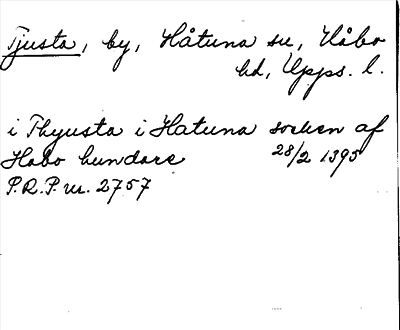 Tjusta, by, Håtuna sn, Håbo
hd, Upps. l.
i Thyusta i Hatuna socken af
Habo hundare 28/2 1395
P.R.P. nr. 2757